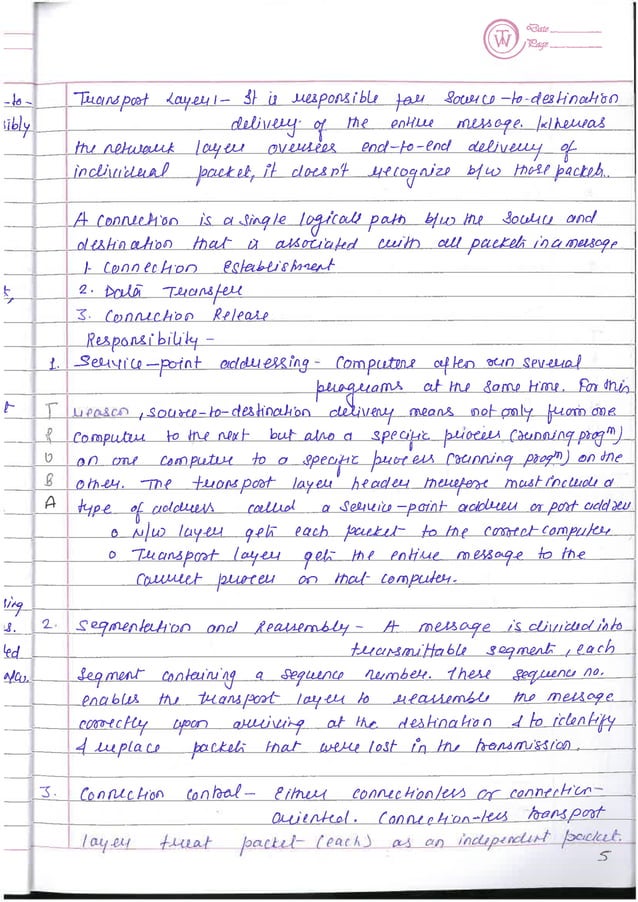 TW
Date
Page
Transport Layer:- It is responsible for source-to-destination
delivery of the entire message. Whereas
the network layer oversees end-to-end delivery of
individual packet, it doesn't recognize b/w those packets.
A connection is a single logical path b/w the source and
destination that is associated with all packets in a message
1. Connection Establishment
2. Data Transfer
3. Connection Release
Responsibility -
1. Service-point addressing - Computers often run several
programs at the same time. For this
reason, source-to-destination delivery means not only from one
computer to the next but also a specific process (running progm)
on one computer to a specific process (running progm) on the
other. The transport layer header therefore must include a
type of address called a service-point address or port address
o N/w layer gets each packet to the correct computer
o Transport layer gets the entire message to the
correct process on that computer.
2. Segmentation and Reassembly - A message is divided into
transmittable segments, each
segment containing a sequence number. These sequence no.
enables the transport layer to reassemble the message
correctly upon arriving at the destination & to identify
& replace packets that were lost in the transmission.
3. Connection control - Either connectionless or connection-
oriented. Connection-less transport
layer treat packet (each) as an independent packet.
5
-to-
sibly
T
R
U
B
A
sing
s.